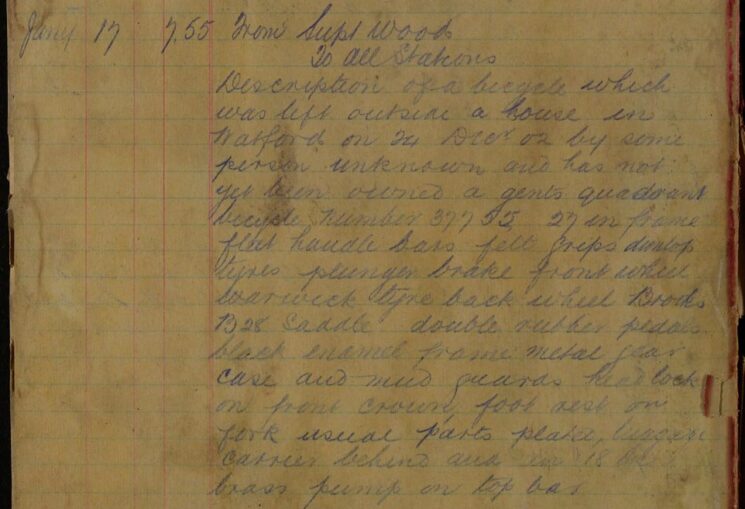 Jany 17 7.55 From Supt Woods
To All Stations
Description of a bicycle which
was left outside a house in
Watford on 24 Decr 02 by some
person unknown and has not
yet been owned a gents quadrant
bicycle number 37755 27 in frame
flat handle bars felt grips dunlop
tyres plunger brake front wheel
Warwick tyre back wheel Brooks
B28 Saddle double rubber pedals
black enamel frame metal gear
case and mud guards head lock
on front crown foot rest on
fork usual parts plated, luggage
carrier behind and 18
brass pump on top bar